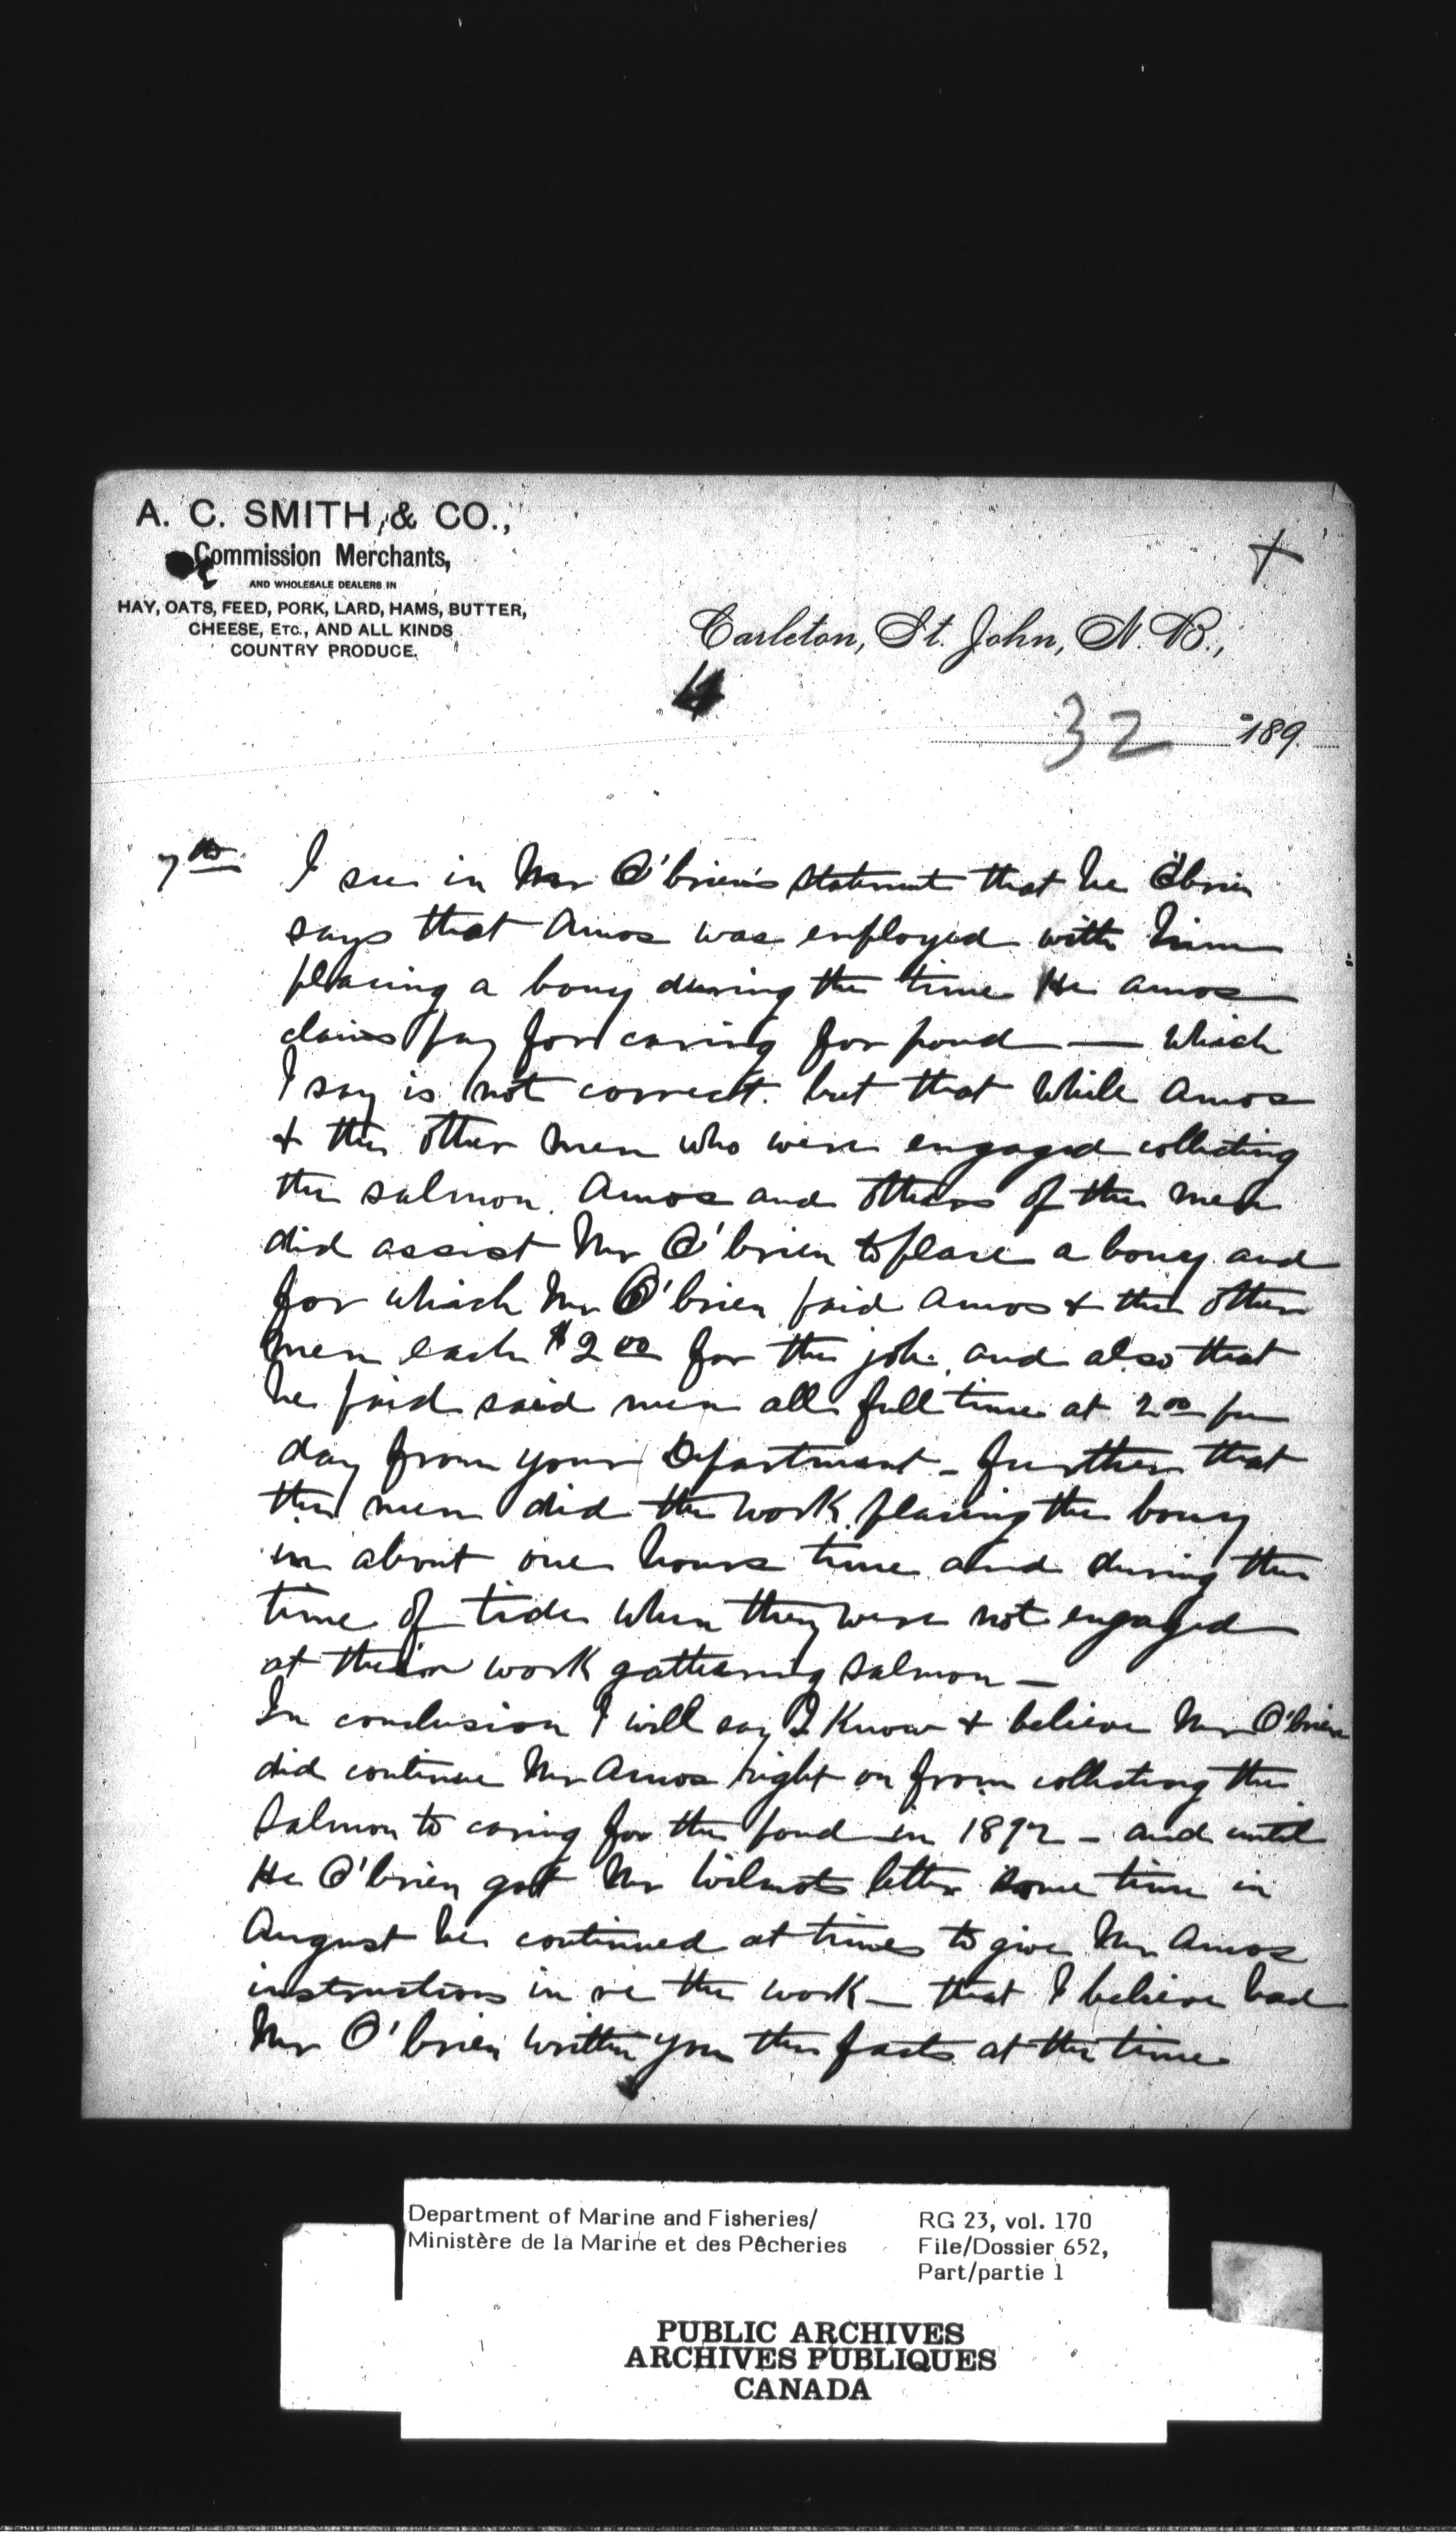 A. C. SMITH, & CO.,
Commission Merchants,
AND WHOLESALE DEALERS IN
HAY, OATS, FEED, PORK, LARD, HAMS, BUTTER,
CHEESE, ETC., AND ALL KINDS
COUNTRY PRODUCE.
+
Carleton, St. John, N. B.,
4
32 189
7th I see in Mr O'brien's statement that he Obrien
says that Amos was employed with him
placing a bouy during the time He Amos
claims pay for caring for pond — which
I say is not correct. but that while Amos
& the other men who were engaged collecting
the salmon. Amos and others of the men
did assist Mr O'brien to place a bouy and
for which Mr O'brien paid Amos & the other
men each $2 00 for the job. and also that
he paid said men all full time at 2 00 per
day from your Department - further that
the men did the work placing the bouy
in about one hours time and during the
time of tide when they were not engaged
at their work gathering salmon —
In conclusion I will say I know & believe Mr O'brien
did continue Mr Amos right on from collecting the
salmon to caring for the pond in 1892 - and until
He O'brien got Mr Wilmots letter some time in
August he continued at times to give Mr Amos
instructions in re the work — that I believe had
Mr O'brien written you the facts at the time
Department of Marine and Fisheries/
Ministère de la Marine et des Pêcheries
RG 23, vol. 170
File/Dossier 652,
Part/partie 1
PUBLIC ARCHIVES
ARCHIVES PUBLIQUES
CANADA